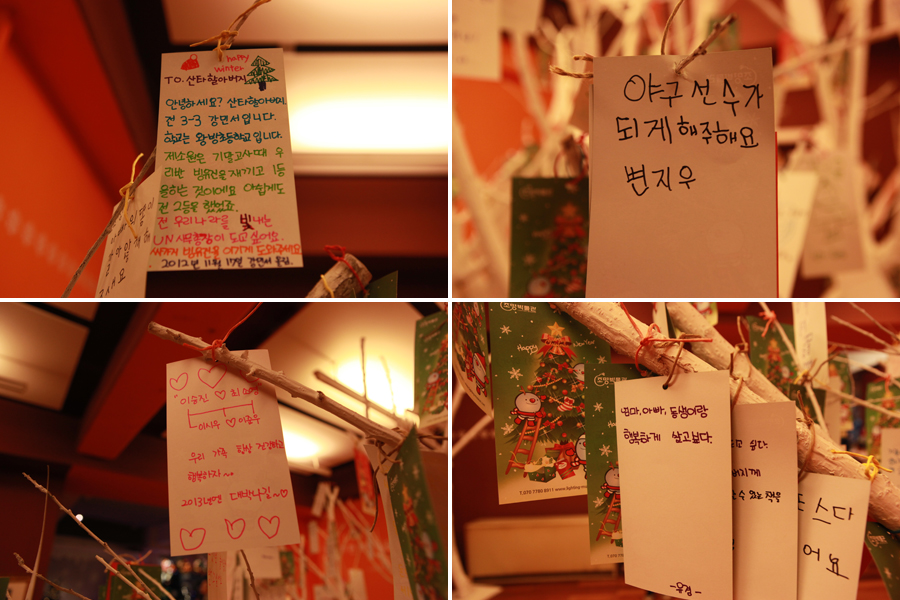 happy
winter
TO. 산타할아버지
안녕하세요? 산타할아버지.
전 3-3 강면서입니다.
학교는 왕방초등학교입니다.
제소원은 기말고사때 우
리반 빙유진을 재끼고 1등
을하는 것이에요 아쉽게도
전 2등을 했었죠.
전 우리나라를 빛내는
UN 사무총장이 되고싶어요.
빙유진을 이기게 도와주세요
2012년 11월 17일 강면서 올림.
야구선수가
되게해주해요
변지우
이승진 ♡ 최
이시우 ♡ 이준우
우리 가족 항상 건강하고
행복하자~
2013년엔 대박나길~♡
소망백통
Happy New Year
T.070 7780 8811
엄마,아빠, 동생이랑
행복하게 살고싶다.
싶다.
지게
수 있는
스다
어요